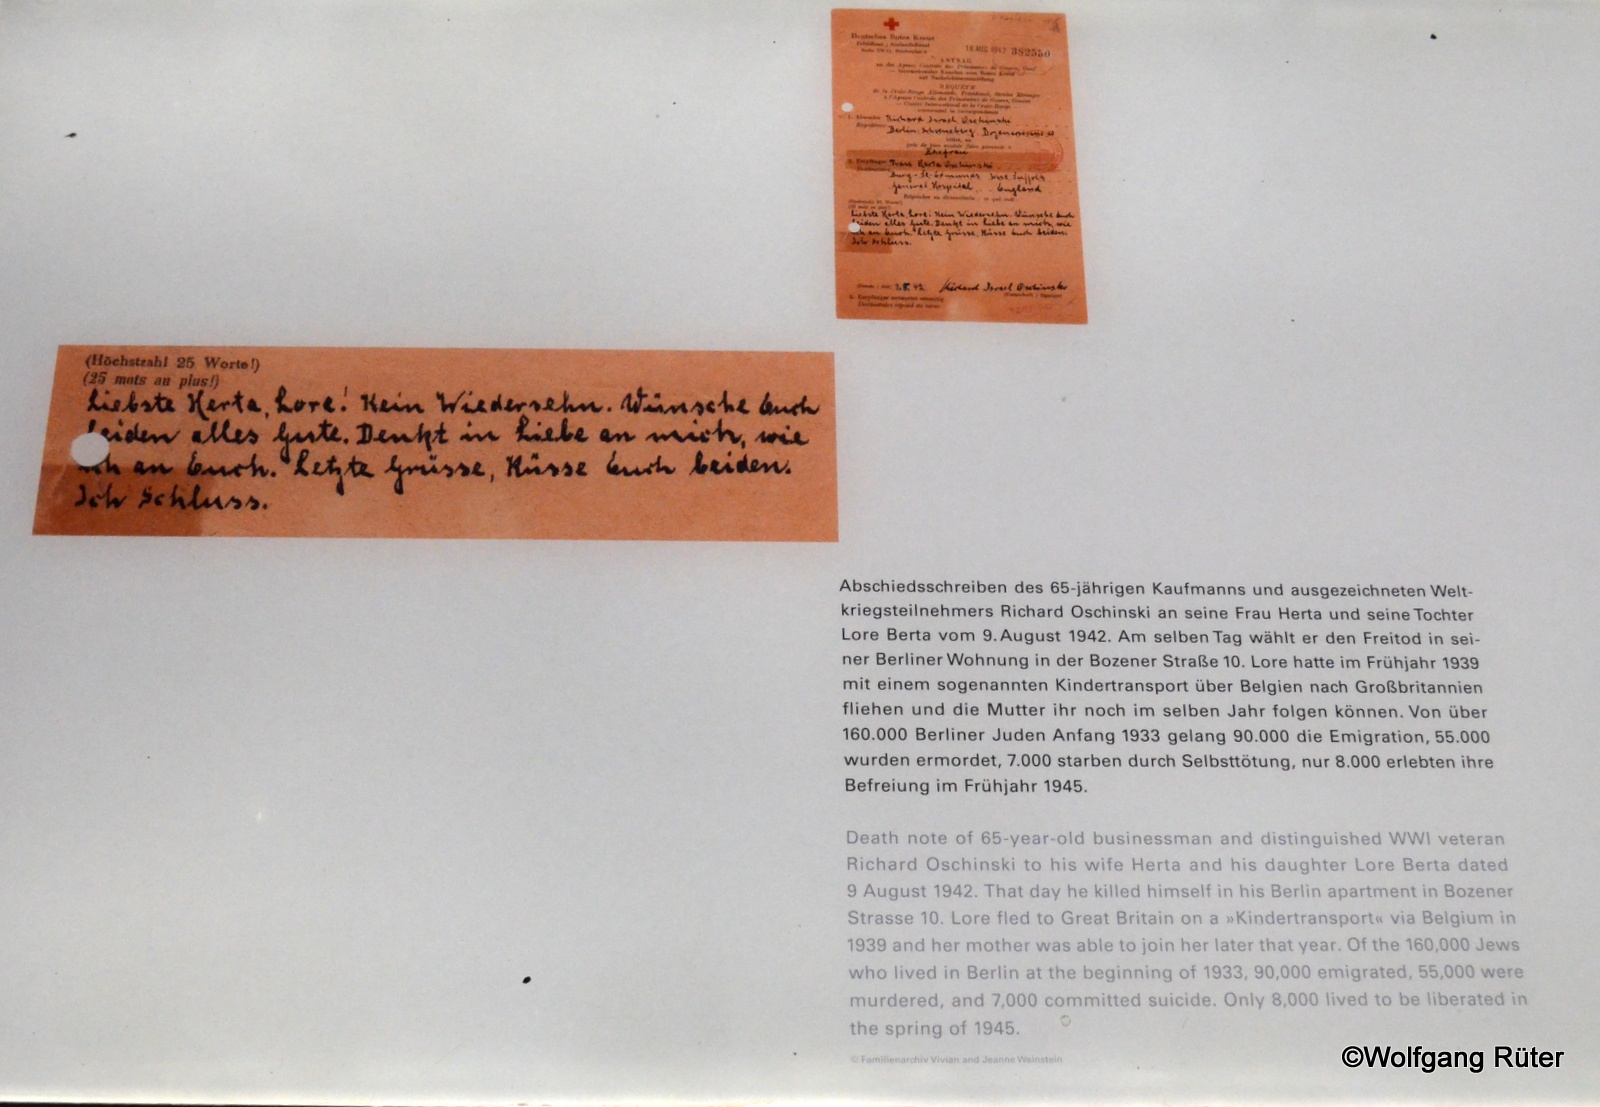 Deutsches Rotes Kreuz
18 AUG 1942 382550
ANTRAG
REQUÊTE
Richard Israel Oschinski
Ehefrau
Frau Herta Oschinski
General Hospital England
(Höchstzahl 25 Worte!)
(25 mots au plus!)
Liebste Herta, Lore! Kein Wiedersehn. Wünsche Euch
beiden alles Gute. Denkt in Liebe an mich, wie
ich an Euch. Letzte Grüsse, Küsse Euch beiden.
Ich Schluss.
Richard Israel Oschinski
(Höchstzahl 25 Worte!)
(25 mots au plus!)
Liebste Herta, Lore! Kein Wiedersehn. Wünsche Euch
beiden alles Gute. Denkt in Liebe an mich, wie
ich an Euch. Letzte Grüsse, Küsse Euch beiden.
Ich Schluss.
Abschiedsschreiben des 65-jährigen Kaufmanns und ausgezeichneten Welt-
kriegsteilnehmers Richard Oschinski an seine Frau Herta und seine Tochter
Lore Berta vom 9. August 1942. Am selben Tag wählt er den Freitod in sei-
ner Berliner Wohnung in der Bozener Straße 10. Lore hatte im Frühjahr 1939
mit einem sogenannten Kindertransport über Belgien nach Großbritannien
fliehen und die Mutter ihr noch im selben Jahr folgen können. Von über
160.000 Berliner Juden Anfang 1933 gelang 90.000 die Emigration, 55.000
wurden ermordet, 7.000 starben durch Selbsttötung, nur 8.000 erlebten ihre
Befreiung im Frühjahr 1945.
Death note of 65-year-old businessman and distinguished WWI veteran
Richard Oschinski to his wife Herta and his daughter Lore Berta dated
9 August 1942. That day he killed himself in his Berlin apartment in Bozener
Strasse 10. Lore fled to Great Britain on a »Kindertransport« via Belgium in
1939 and her mother was able to join her later that year. Of the 160,000 Jews
who lived in Berlin at the beginning of 1933, 90,000 emigrated, 55,000 were
murdered, and 7,000 committed suicide. Only 8,000 lived to be liberated in
the spring of 1945.
© Familienarchiv Vivian and Jeanne Wainstein
©Wolfgang Rüter